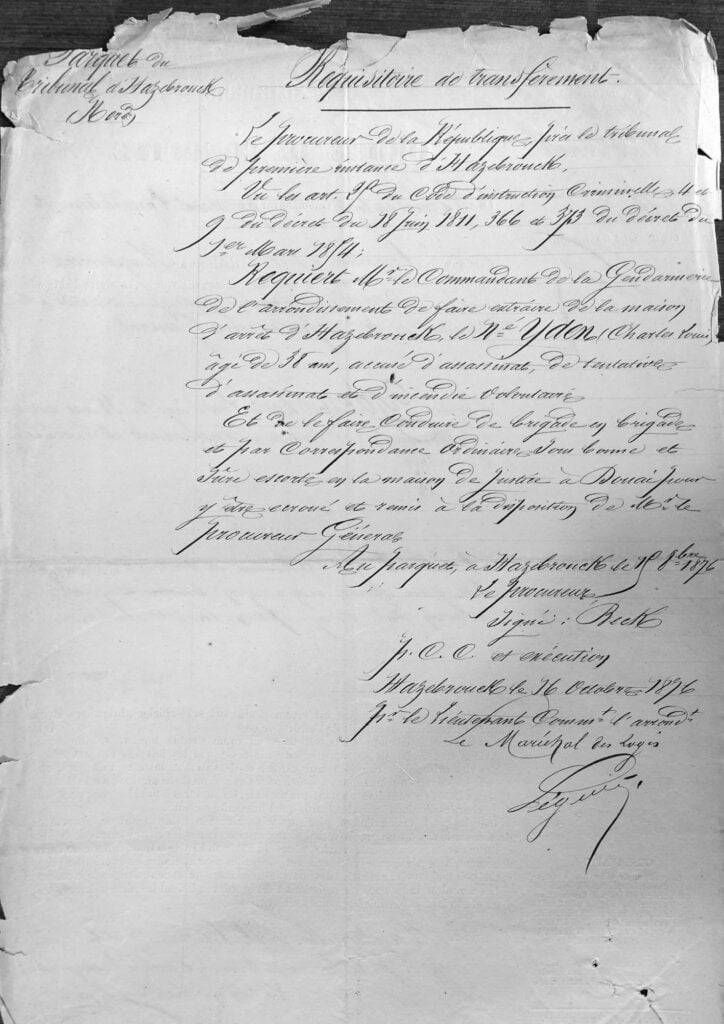 Parquet du
Tribunal d'Hazebrouck
Nord
Réquisitoire de transfèrement.
Le procureur de la République près le tribunal
de première instance d'Hazebrouck,
Vu les art. du Code d'instruction Criminelle, 4 et
9 du décret du 18 Juin 1811, 366 et 373 du décret du
1er Mars 1854;
Requiert Mr. le Commandant de la Gendarmerie
de l'arrondissement de faire extraire de la maison
d'arrêt d'Hazebrouck, le Né Yden, (Charles Louis)
âgé de 38 ans, accusé d'assassinat, de tentative
d'assassinat et d'incendie volontaire
Et de le faire Conduire de brigade en brigade
et par Correspondance Ordinaire, sous bonne et
sûre escorte en la maison de Justice à Douai pour
y être écroué et remis à la disposition de Mr. le
procureur Général
Au parquet, à Hazebrouck le 15 8bre 1876
Le procureur,
Signé: Beck
p. C. C. et exécution
Hazebrouck le 16 Octobre 1876
Pr. le Lieutenant Commt. l'arrondt.
Le Maréchal des logis